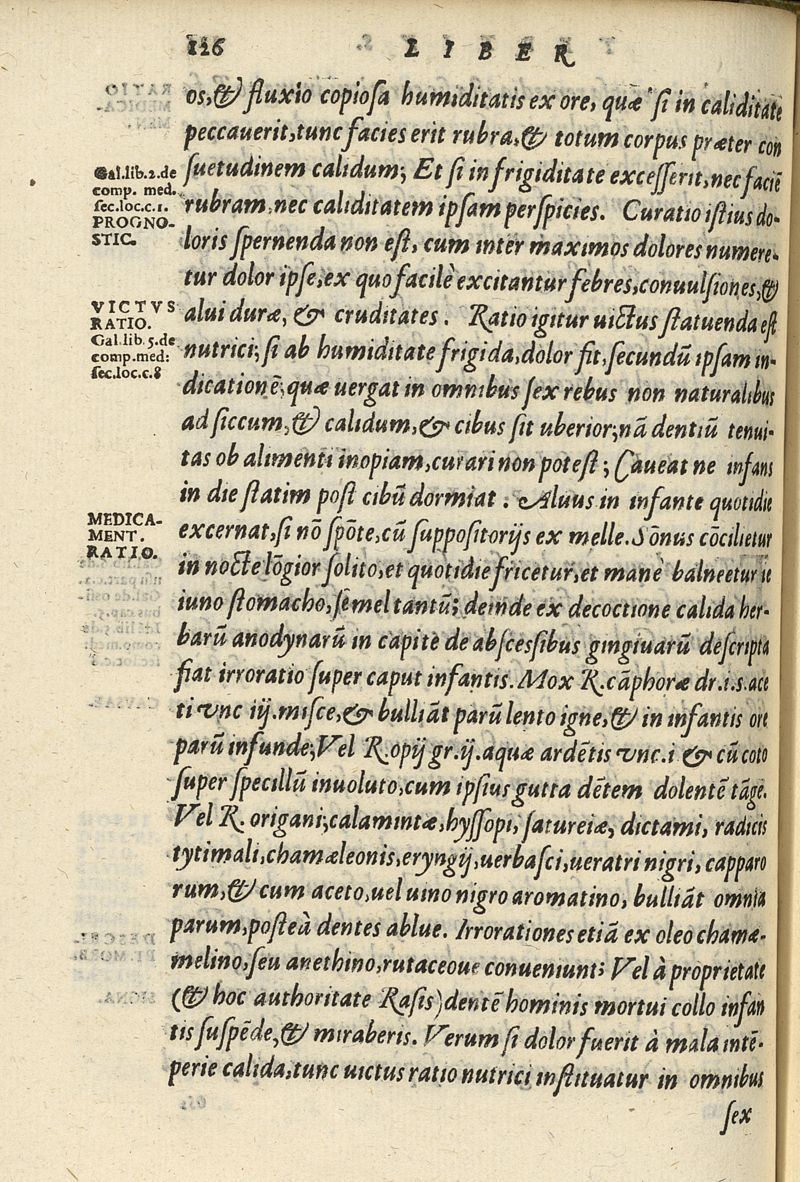 126 LIBER
os,& fluxio copiosa humiditatis ex ore, quæ si in caliditate
peccauerit,tunc facies erit rubra,& totum corpus præter con
Gal.lib.2.de
comp. med.
sec.loc.c.1.
PROGNO-
STIC.
suetudinem calidum; Et si in frigiditate excesserit,nec faciē
rubram,nec caliditatem ipsam perspicies. Curatio istius do-
loris spernenda non est, cum inter maximos dolores numere-
tur dolor ipse,ex quo facilè excitantur febres,conuulsiones,&
VICTVS
RATIO.
Gal.lib.5.de
comp.med:
sec.loc.c.8
alui duræ, & cruditates. Ratio igitur uictus statuenda est
nutrici; si ab humiditate frigida,dolor fit,secundū ipsam in-
dicationē,quæ uergat in omnibus sex rebus non naturalibus
ad siccum,& calidum,& cibus sit uberior;nā dentiū tenui-
tas ob alimenti inopiam,curari non potest; Caueat ne infans
in die statim post cibū dormiat. Aluus in infante quotidie
MEDICA-
MENT.
RATIO.
excernat,si nō spōte,cū suppositorijs ex melle. Sōnus cōcilietur
in nocte lōgior solito,et quotidie fricetur,et manè balneetur ie
iuno stomacho,semel tantū; deinde ex decoctione calida her-
barū anodynarū in capite de abscessibus gingiuarū descripta
fiat irroratio super caput infantis. Mox R. cāphoræ dr.i.s.ace
ti vnc iij.misce,& bulliāt parū lento igne,& in infantis ore
parū infunde;Vel R.opij gr.ij.aquæ ardētis vnc.i & cū coto
super specillū inuoluto,cum ipsius gutta dētem dolentē tāge.
Vel R. origani,calamintæ,hyssopi, satureiæ, dictami, radicis
tytimali,chamæleonis,eryngij,uerbasci,ueratri nigri, capparo
rum,& cum aceto,uel uino nigro aromatino, bulliāt omnia
parum,posteà dentes ablue. Irrorationes etiā ex oleo chamæ-
melino,seu anethino,rutaceoue conueniunt; Vel à proprietate
(& hoc authoritate Rasis) dentē hominis mortui collo infan
tis suspēde,& miraberis. Verum si dolor fuerit à mala intē-
perie calida,tunc uictus ratio nutrici instituatur in omnibus
sex